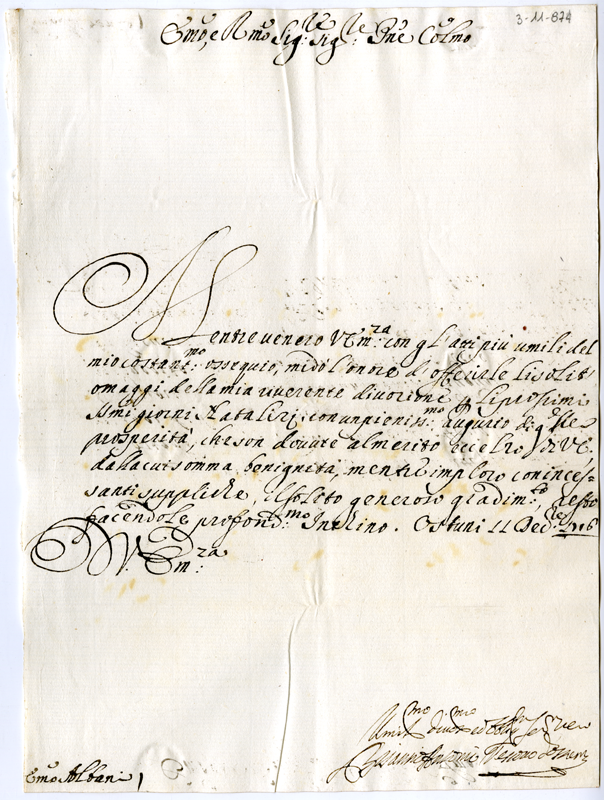 3-11-874
Emo, e Rmo Sig:re Sig:re Pne Colmo
Mentre venero V Em:za con gl'atti più umili del
mio costan:mo ossequio, mi dò l'onore d'officiarle li solit
omaggi della mia riverente divozione li prossimi
SSmi giorni Natalizj con un pieniss:mo augurio di q:lle
prosperità, che son dovute al merito eccelso di VE.
dalla cui somma benignità, mentre imploro con inces-
santi suppliche, il solito generoso gradim:to, resto
facendole profond:mo Inchino. Ostuni 11 Dec:
V. Em:za
Umil:mo div:mo ed obb:mo Ser
Emo Albani